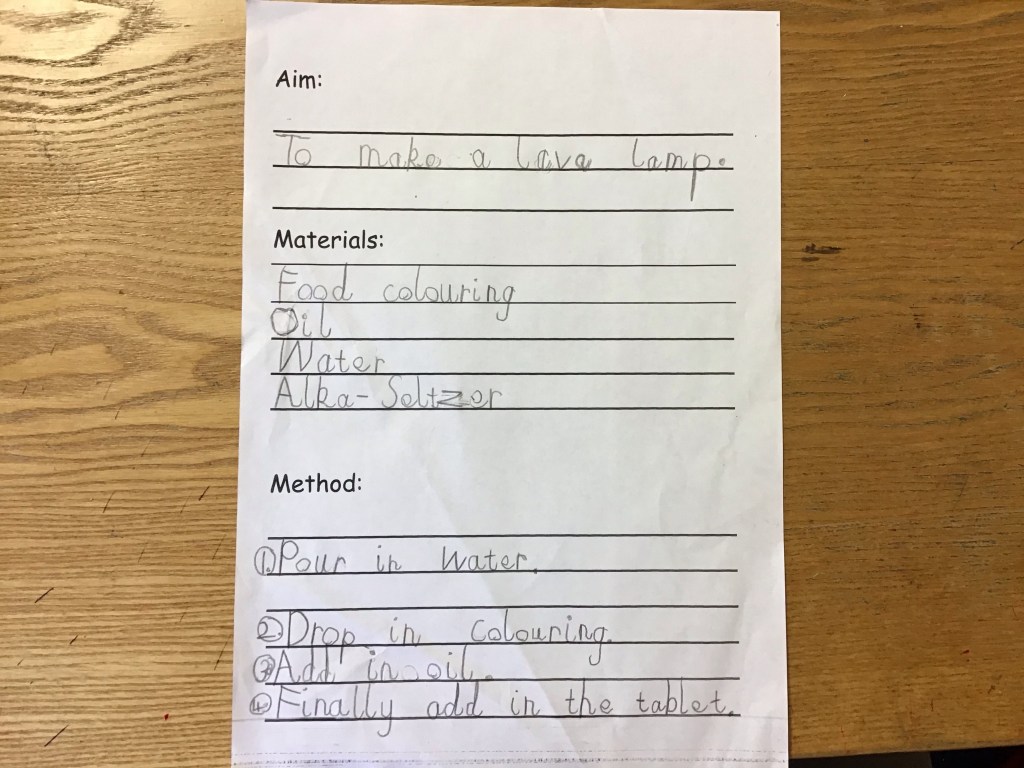 Aim:
To make a lava lamp.
Materials:
Food colouring
Oil
Water
Alka-Seltzer
Method:
1. Pour in water.
2. Drop in colouring.
3. Add in oil.
4. Finally add in the tablet.